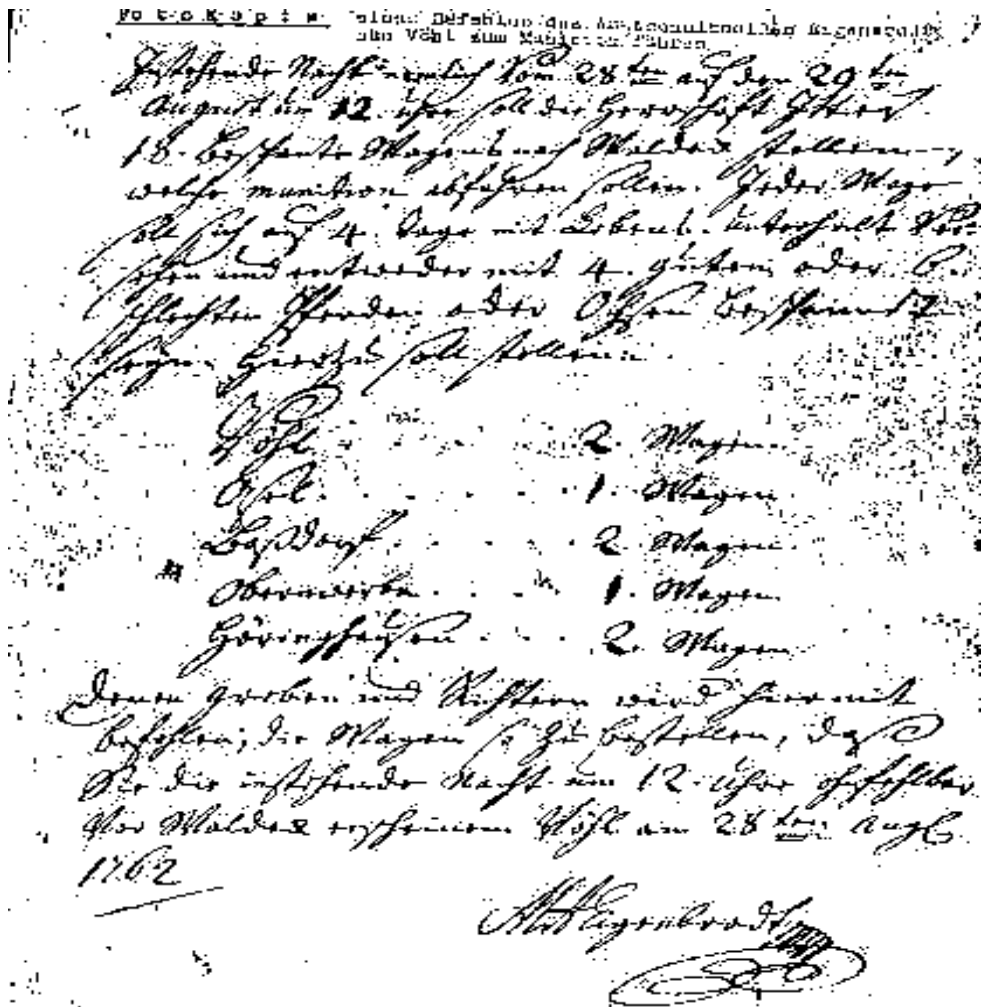 Fotokopie eines Befehles des Amtsschultheißen Eigenbrodt
aus Vöhl zum Munition fahren
Instehende Nacht nemlich Vom 28ten auf den 29ten
August um 12. Uhr soll die Herrschaft Itter
18. Bespante Wagens nach Waldeck stellen,
welche munition abfahren sollen. Jeder Wage
soll sich auf 4. Tage mit Lebens-unterhalt Ver-
sehen und entweder mit 4. guten oder 6.
schlechten Pferden oder Ochsen bespannt
seyn. Hierzu soll stellen:
Vöhl . . . . . 2. Wagen
Asel . . . . . 1. Wagen
Baßdorf . . . . . 2. Wagen
Oberwerbe . . . . 1. Wagen
Höringhausen . . . 2. Wagen
Denen Greben und Richtern wird hiermit
befohlen, die Wagen so zu bestellen, daß
Sie die instehende Nacht um 12. Uhr ohnfehlbar
Vor Waldeck erscheinen Vöhl am 28ten Aug
1762
Eigenbrodt